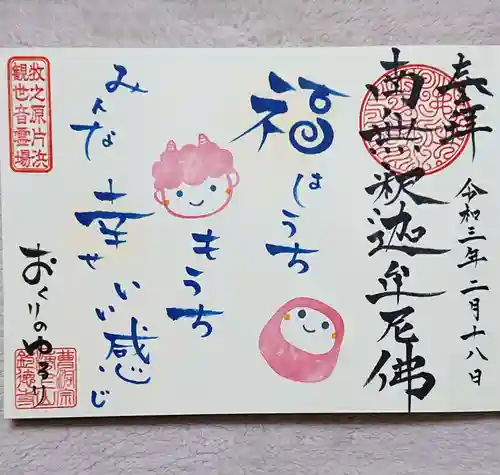 奉拝
令和三年二月十八日
南無釈迦牟尼佛
福はうち
もうち
みんな幸せいい感じ
牧之原片浜
観世音霊場
おくりのゆるり
曹洞宗